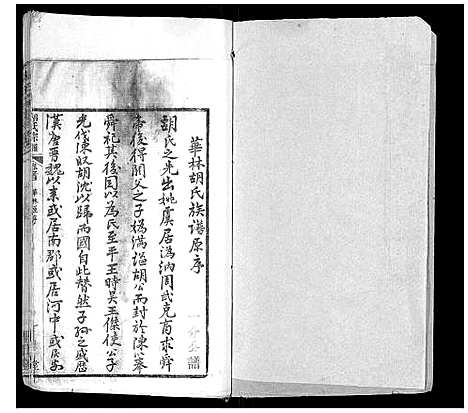 華林胡氏族譜原序
胡氏之先出姚虞居溈汭周武克商求舜
帝後得閼父之子媯滿諡胡公而封於陳公奉
舜祀其後因以為氏至平王時吳王僚使公子
光伐陳奴胡沈以歸兩國自此替然子孫之盛歷
漢唐晉魏以來或居南郡或居河中或居
胡氏宗譜
華林原序
堂